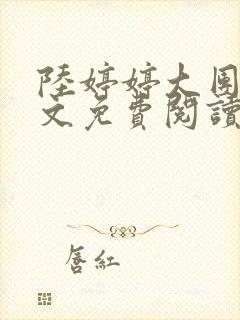 陸婷婷大圍
文免費閱讀
唇紅